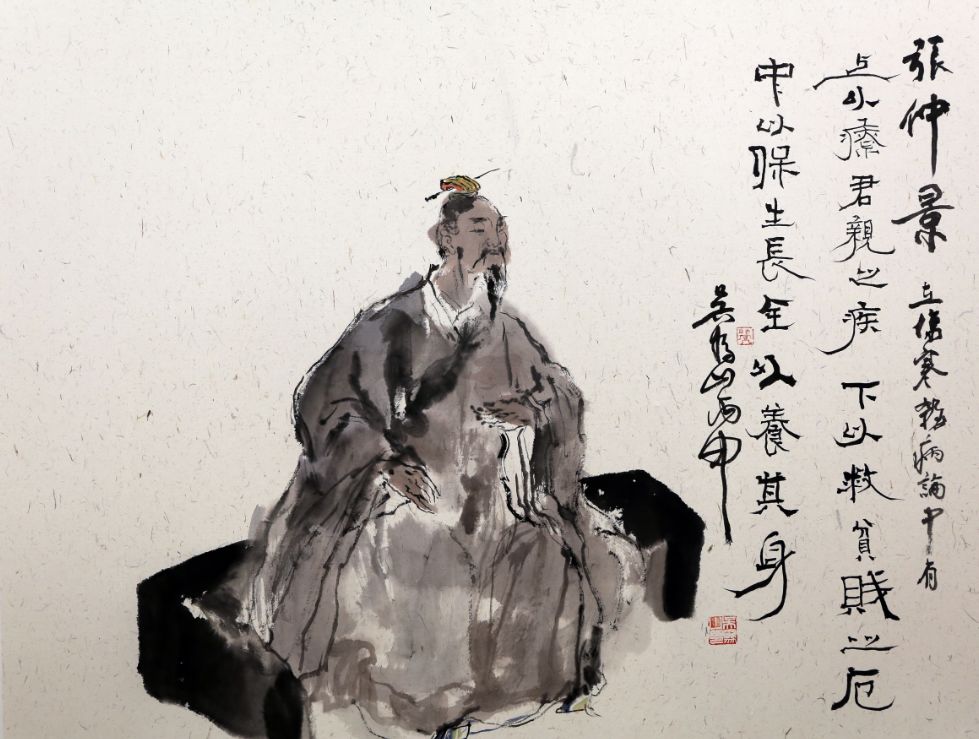 張仲景 在傷寒雜病論中有
上以療君親之疾 下以救貧賤之厄
中以保生長全以養其身
吴為山丙申